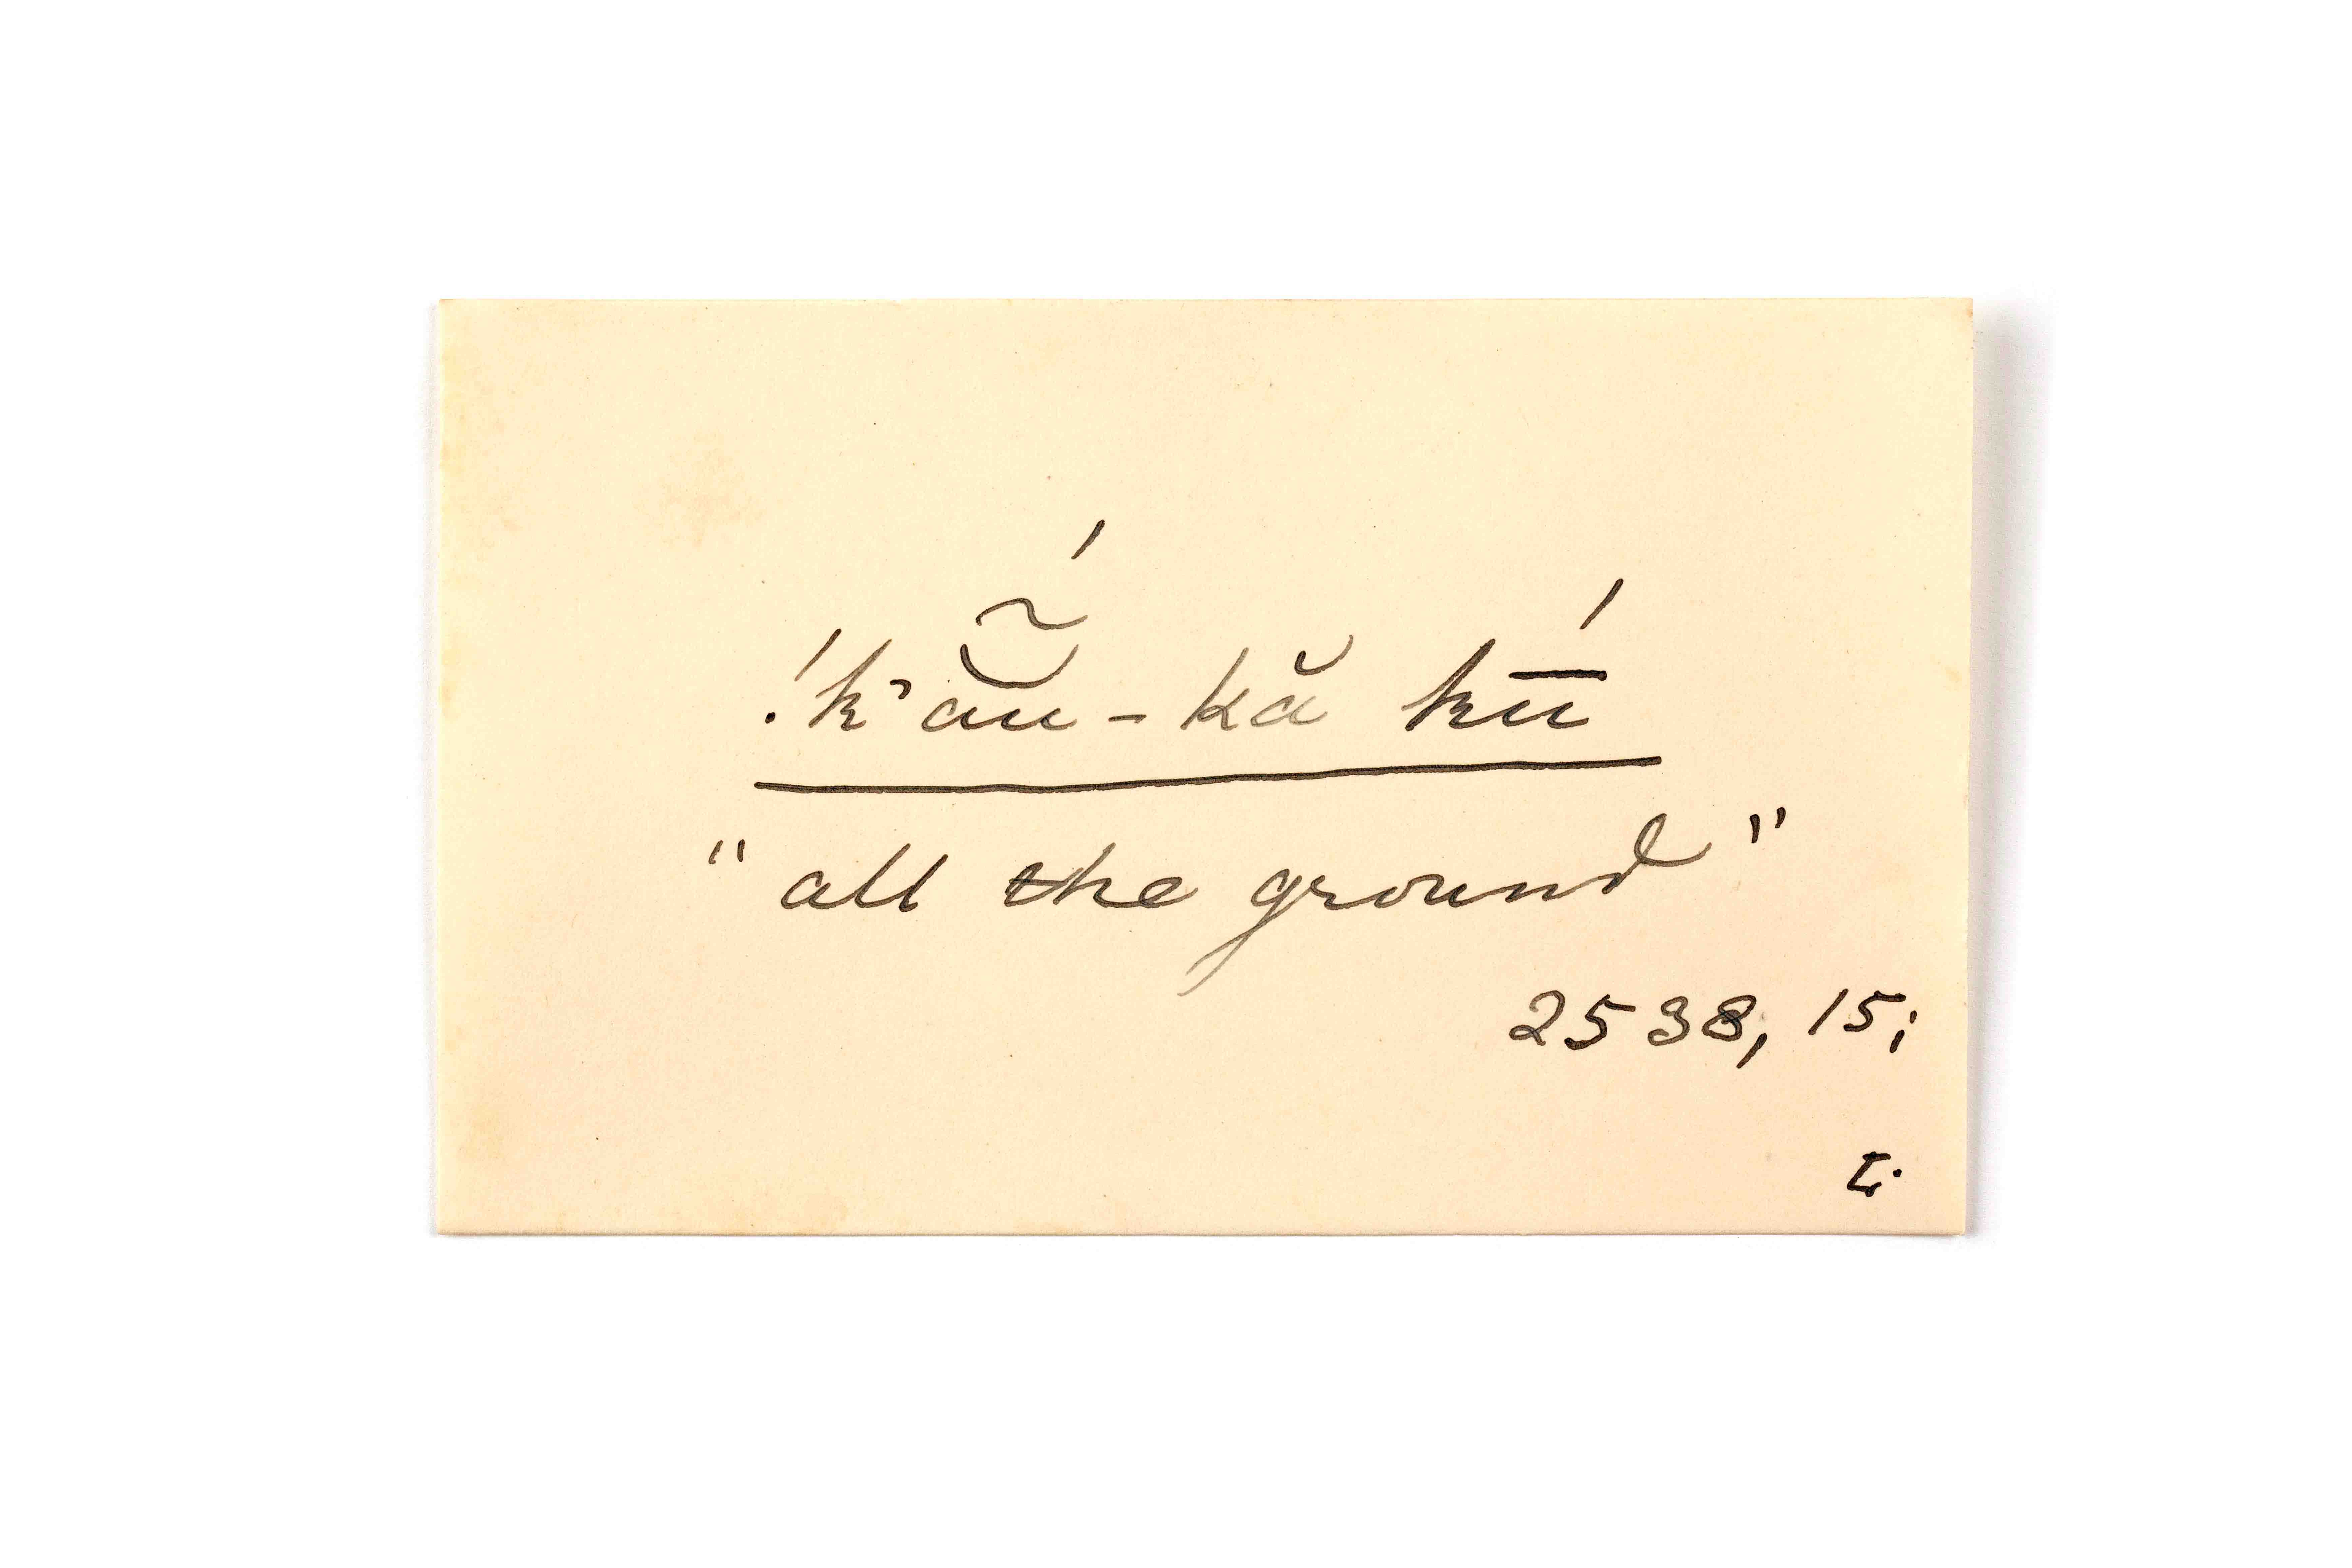 !kʾaŭ̃́-kă kū́
"all the ground"
2538, 15;
L.